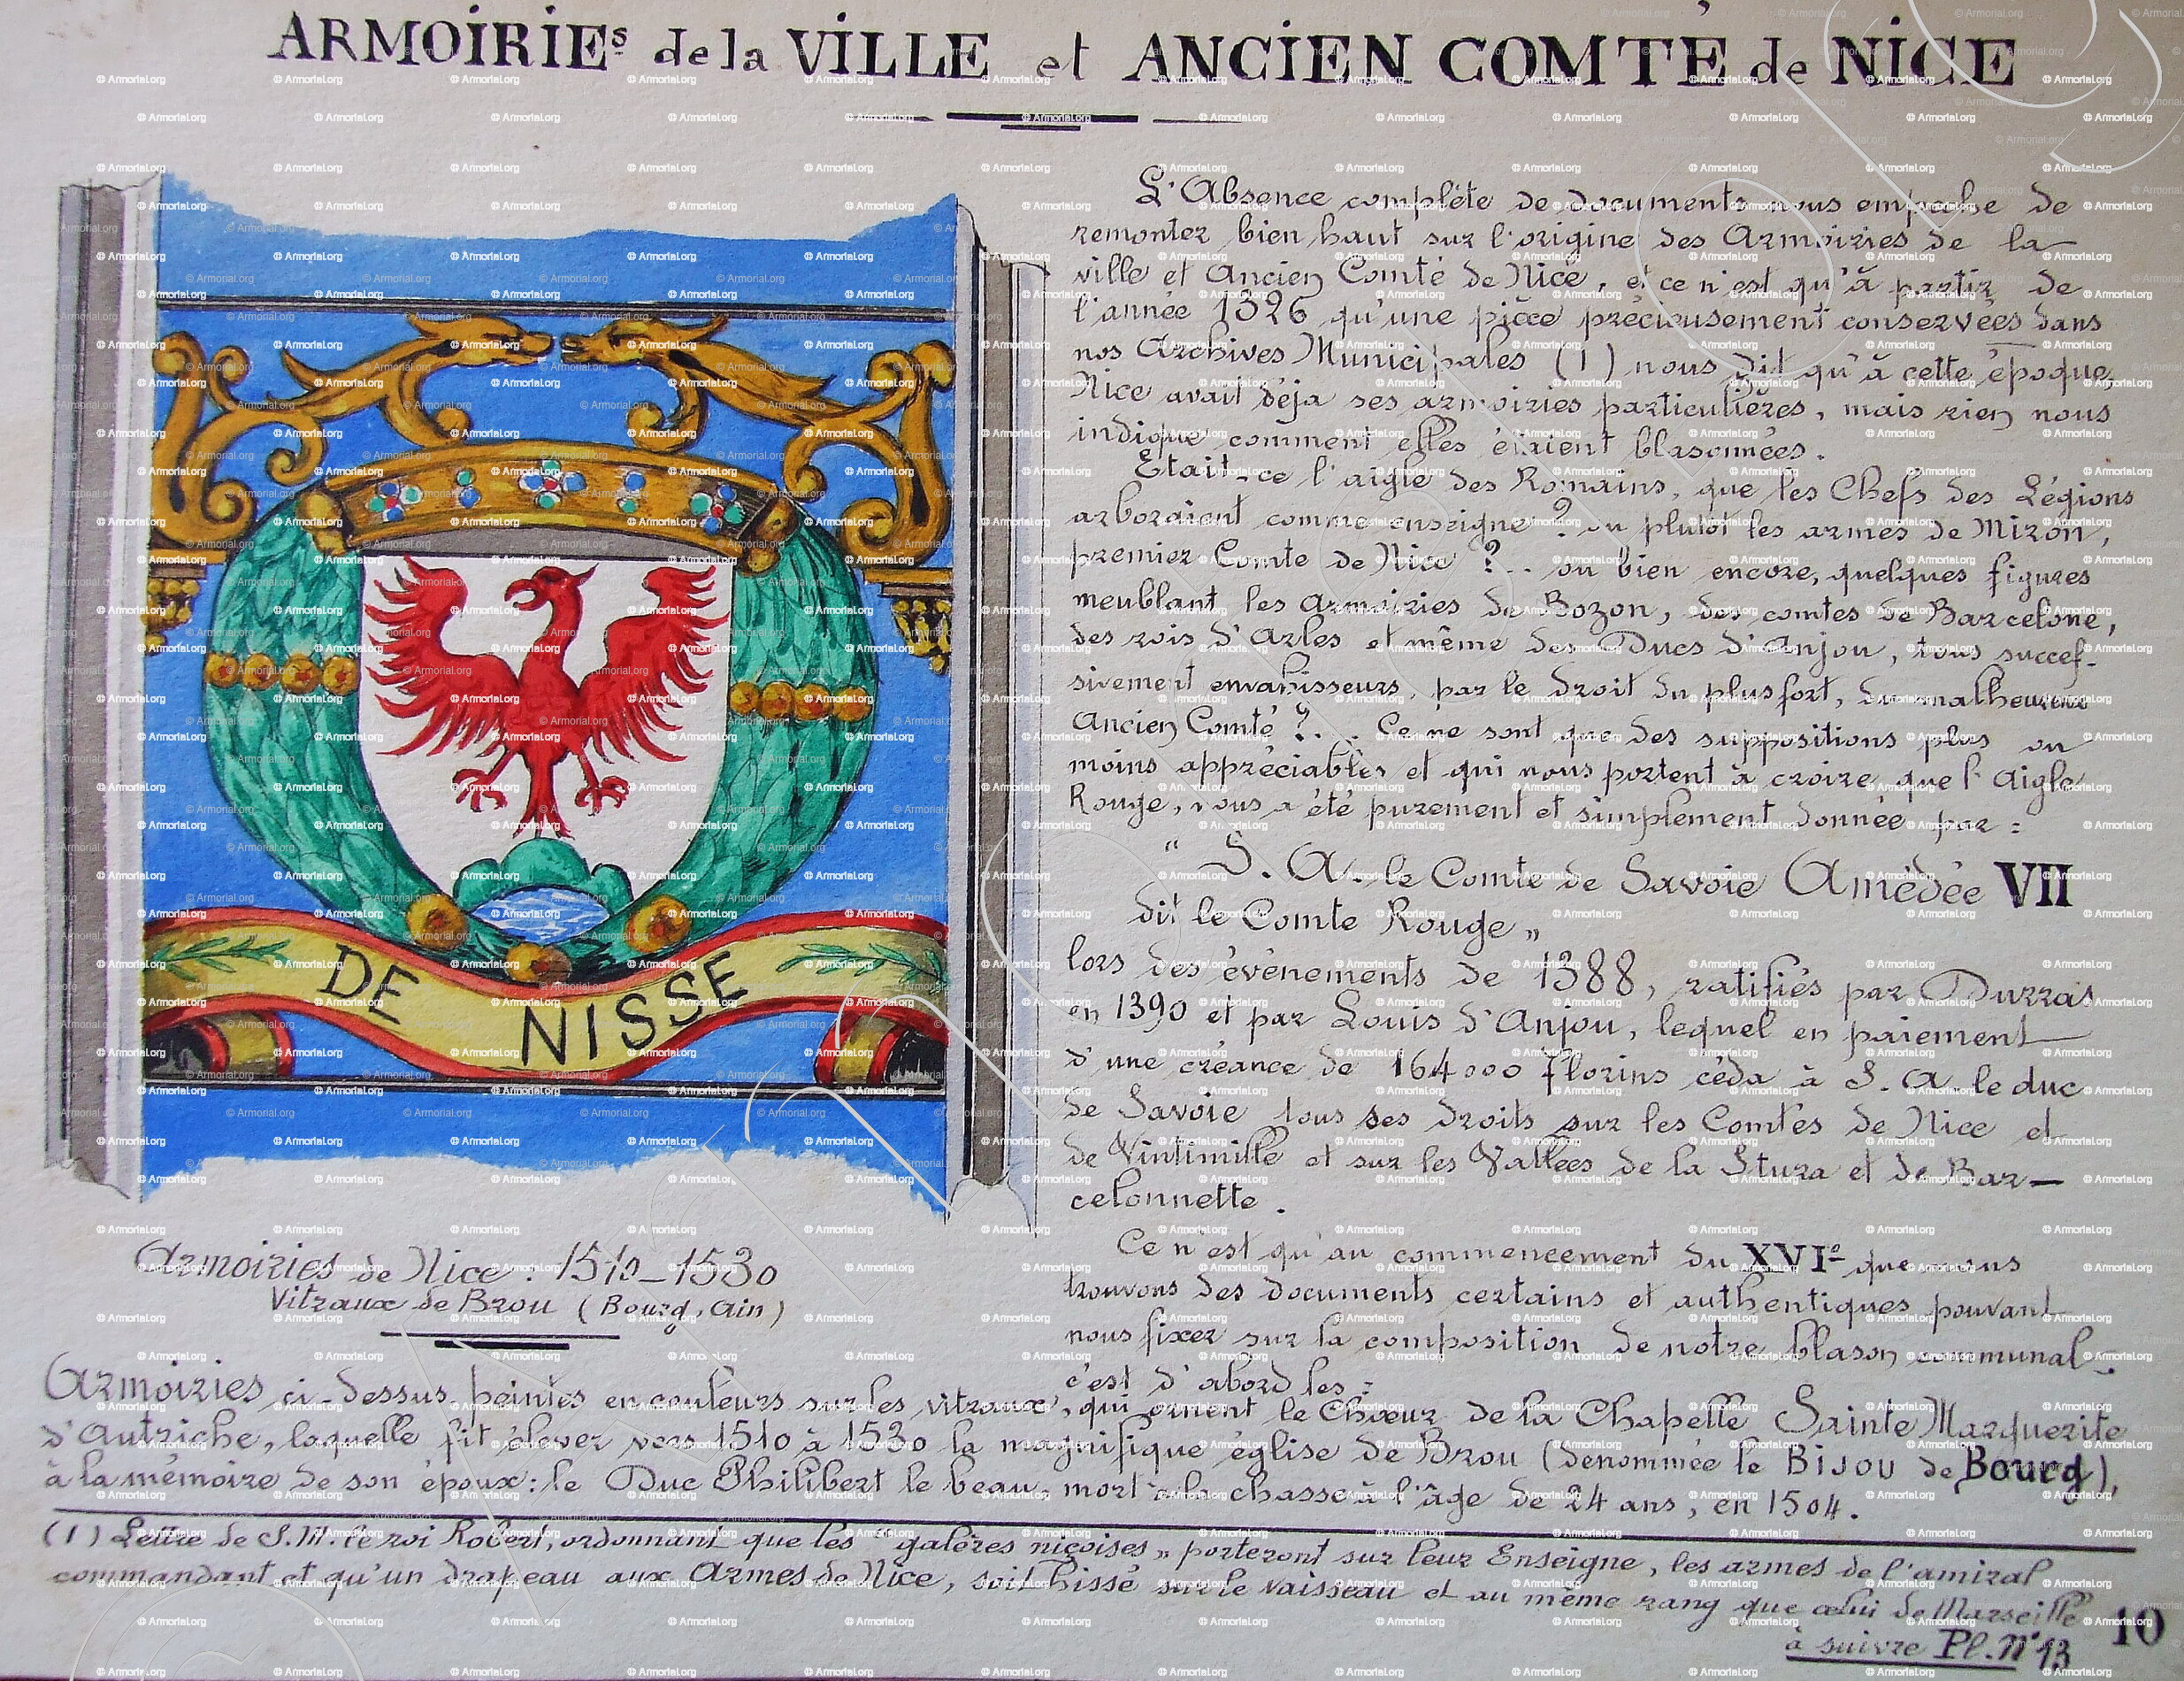 ARMOIRIEs de la VILLE et ANCIEN COMTÉ de NICE
L'Absence complète de documents nous empêche de
remonter bien haut sur l'origine des Armoiries de la
ville et Ancien Comté de Nice, et ce n'est qu'à partir de
l'année 1326 qu'une pièce précieusement conservées dans
nos Archives Municipales (1) nous dit qu'à cette époque,
Nice avait déja ses armoiries particulières, mais rien nous
indique comment elles étaient blasonnées.
Etait-ce l'aigle des Romains, que les Chefs des Légions
arboraient comme enseigne ? ou plutôt les armes de Miron,
premier Comte de Nice ?.. ou bien encore, quelques figures
meublant les armoiries de Bozon, des comtes de Barcelone,
des rois d'Arles et même des Ducs d'Anjou, tous succes-
sivement envahisseurs, par le droit du plus fort, du malheureux
Ancien Comté ?.. Ce ne sont que des suppositions plus ou
moins appréciables et qui nous portent à croire que l'Aigle
Rouge, nous a été purement et simplement donnée par :
" S. A. le Comte de Savoie Amédée VII
dit le Comte Rouge "
lors des évènements de 1388, ratifiés par Durras
en 1390 et par Louis d'Anjou, lequel en paiement
d'une créance de 164000 Florins céda à S. A. le duc
de Savoie tous ses droits sur les Comtés de Nice et
de Vintimille et sur les Vallées de la Stura et de Bar-
celonnette.
Ce n'est qu'au commencement du XVIe que nous
trouvons des documents certains et authentiques pouvant
nous fixer sur la composition de notre blason communal :
c'est d'abord les :
DE NISSE
Armoiries de Nice. 1510_1530
Vitraux de Brou (Bourg, Ain)
Armoiries ci-dessus peintes en couleurs sur les vitraux, qui ornent le Chœur de la Chapelle Sainte Marguerite
d'Autriche, laquelle fit élever vers 1510 à 1530 la magnifique église de Brou (dénommée le BIJOU de Bourg),
à la mémoire de son époux : le Duc Philibert le beau, mort à la chasse à l'âge de 24 ans, en 1504.
(1) Lettre de S.M. le roi Robert, ordonnant que les "galères niçoises" porteront sur leur Enseigne, les armes de l'amiral
commandant et qu'un drapeau aux Armes de Nice, soit hissé sur le vaisseau et au même rang que celui de Marseille
à suivre Pl. N° 13
10